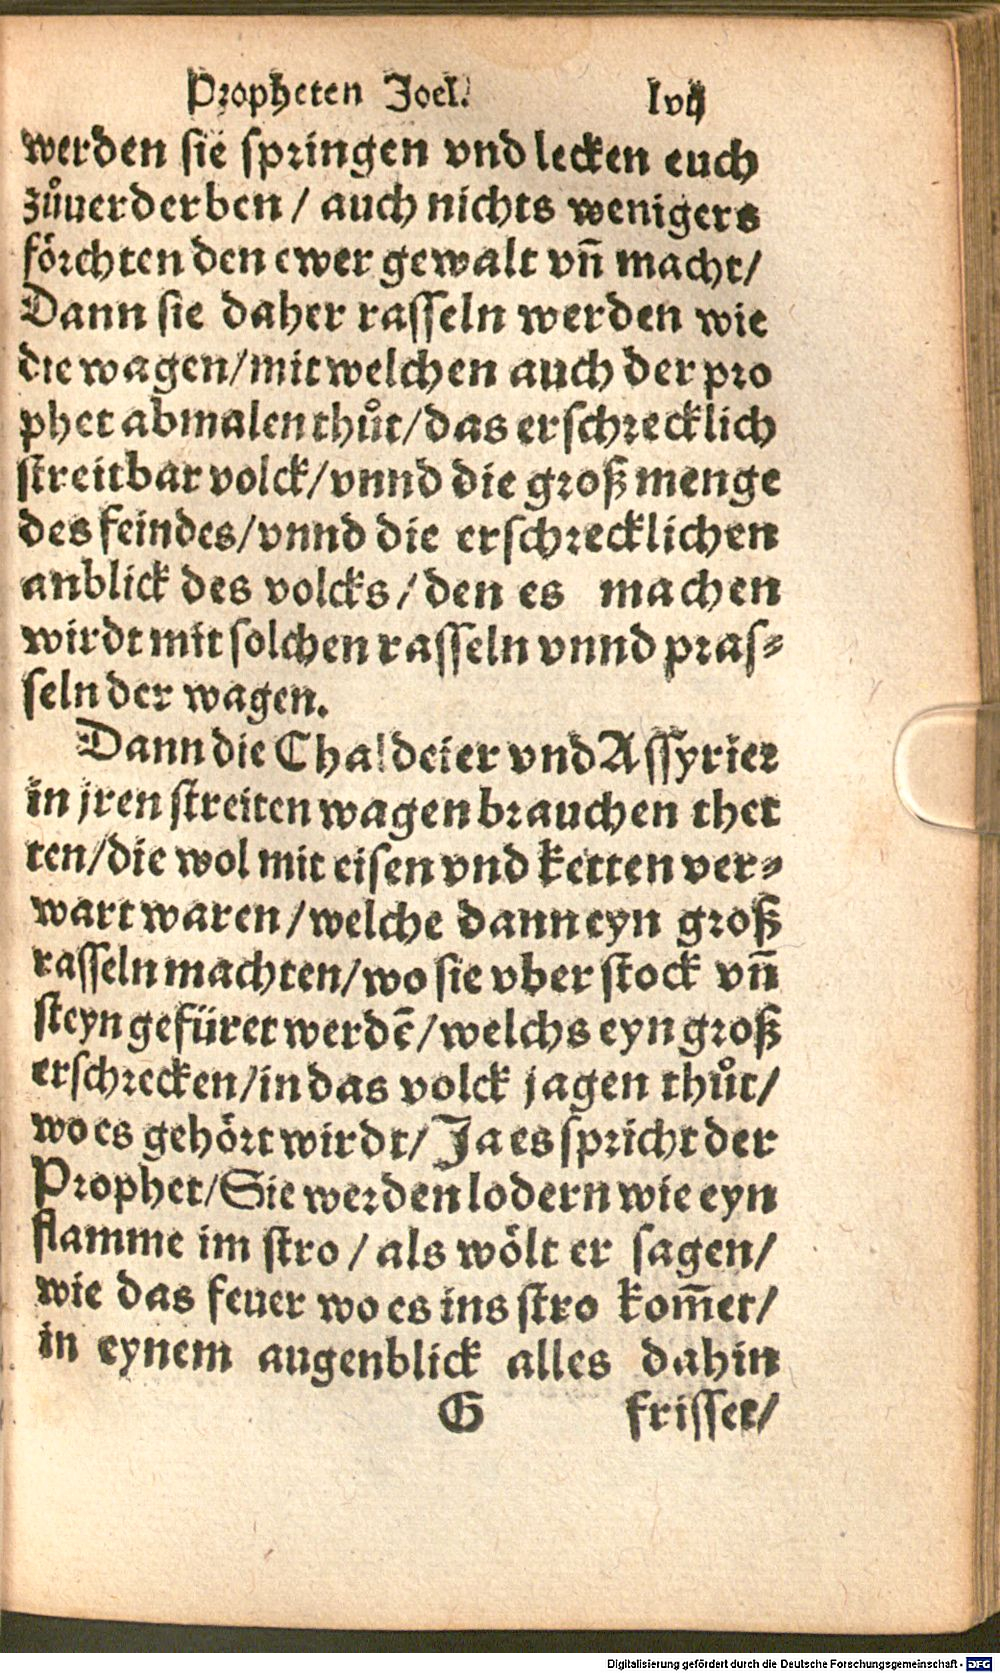 Propheten Joel. lvij
werden sie springen vnd lecken euch
zůuerderben / auch nichts wenigers
förchten den ewer gewalt vn̄ macht/
Dann sie daher rasseln werden wie
die wagen/mit welchen auch der pro
phet abmalen thůt/das erschrecklich
streitbar volck/vnnd die groß menge
des feindes/vnnd die erschrecklichen
anblick des volcks/den es machen
wirdt mit solchen rasseln vnnd pras⸗
seln der wagen.
Dann die Chaldeier vnd Assyrier
in jren streiten wagen brauchen thet
ten/die wol mit eisen vnd ketten ver⸗
wart waren/welche dann eyn groß
rasseln machten/wo sie vber stock vn̄
steyn gefüret werdē/welchs eyn groß
erschrecken/in das volck jagen thůt/
wo es gehört wirdt/Ja es spricht der
Prophet/Sie werden lodern wie eyn
flamme im stro/als wölt er sagen/
wie das feuer wo es ins stro kom̄et/
in eynem augenblick alles dahin
G frisset/
Digitalisierung gefördert durch die Deutsche Forschungsgemeinschaft - DFG